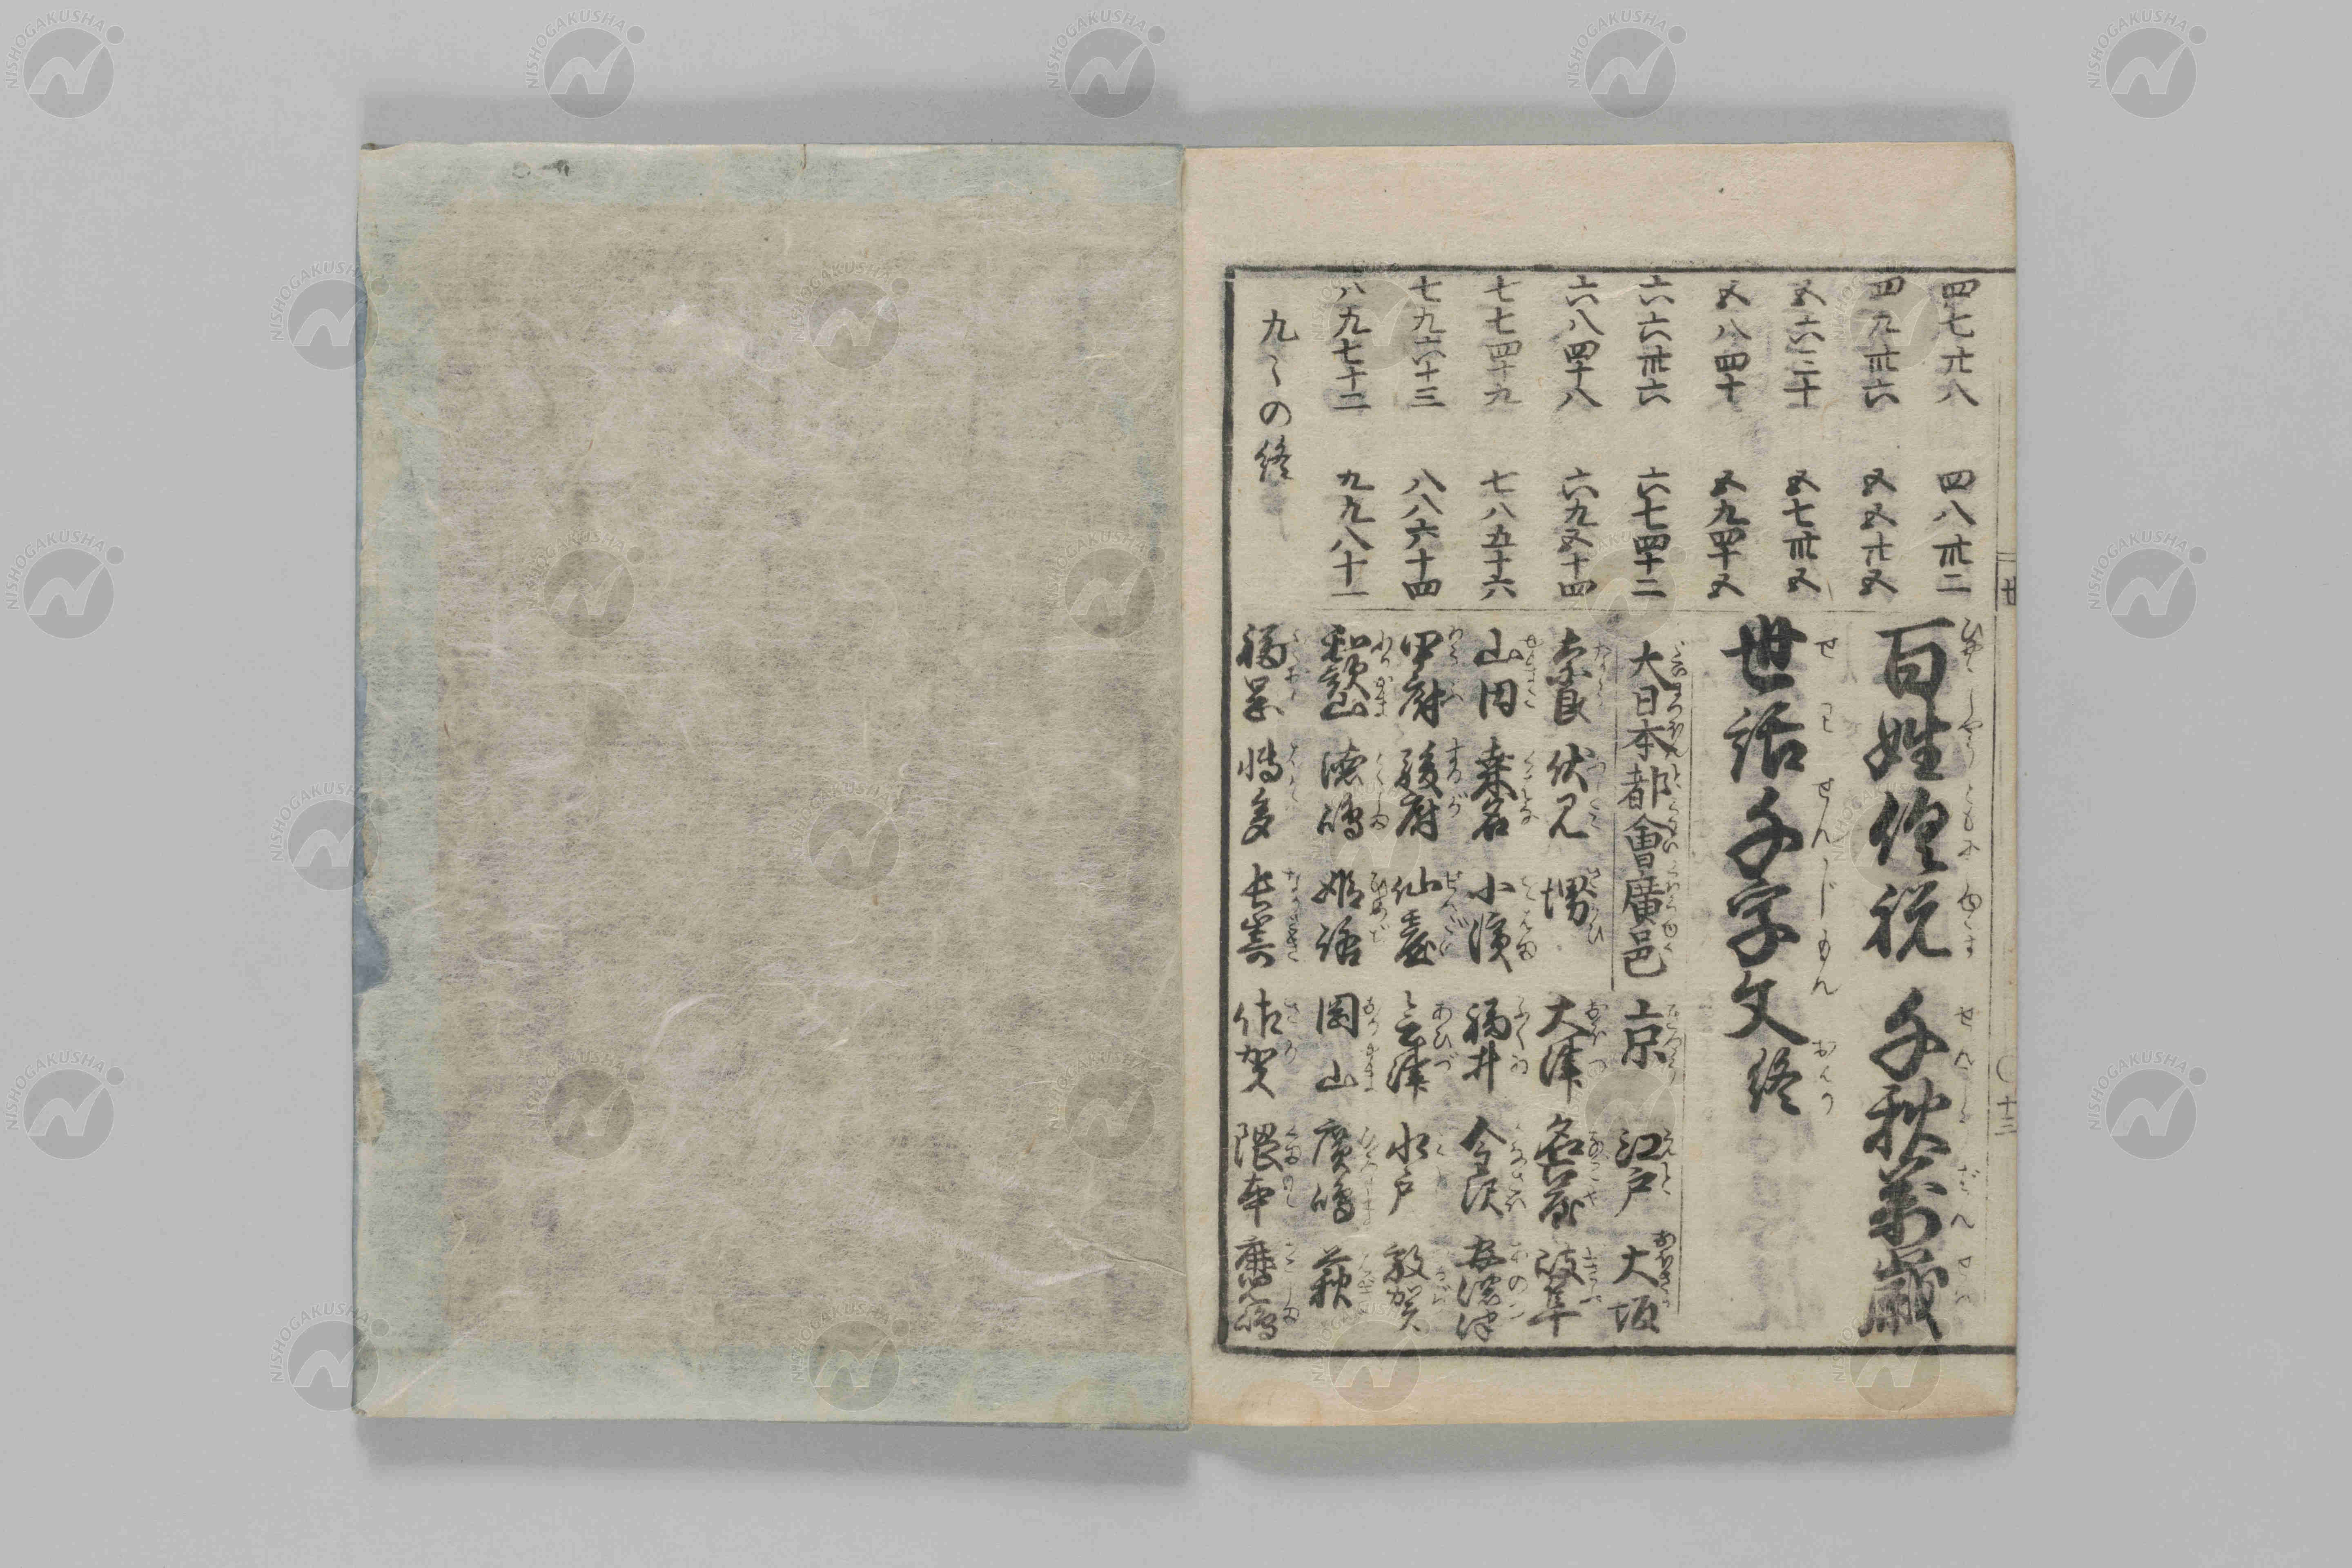 四七廿八　四八卅二
四九卅六　五五廿五
五六三十　五七卅五
五八四十　五九四十五
六六卅六　六七四十二
六八四十八　六九五十四
七七四十九　七八五十六
七九六十三　八八六十四
八九七十二　九九八十一
九〻の終
百姓俱祝　千秋萬歳
世話千字文終
せわせんじもんおはり
大日本都會廣邑　京　江戸　大坂
奈良　伏見　堺　大津　名古屋　岐阜
山田　桑名　小濱　福井　金沢　安濃津
甲府　駿府　仙臺　会津　水戸　敦賀
和歌山　徳嶋　姫路　岡山　廣嶋　萩
福岡　博多　長崎　佐賀　隈本　鹿児嶋
十三
NISHOGAKUSHA